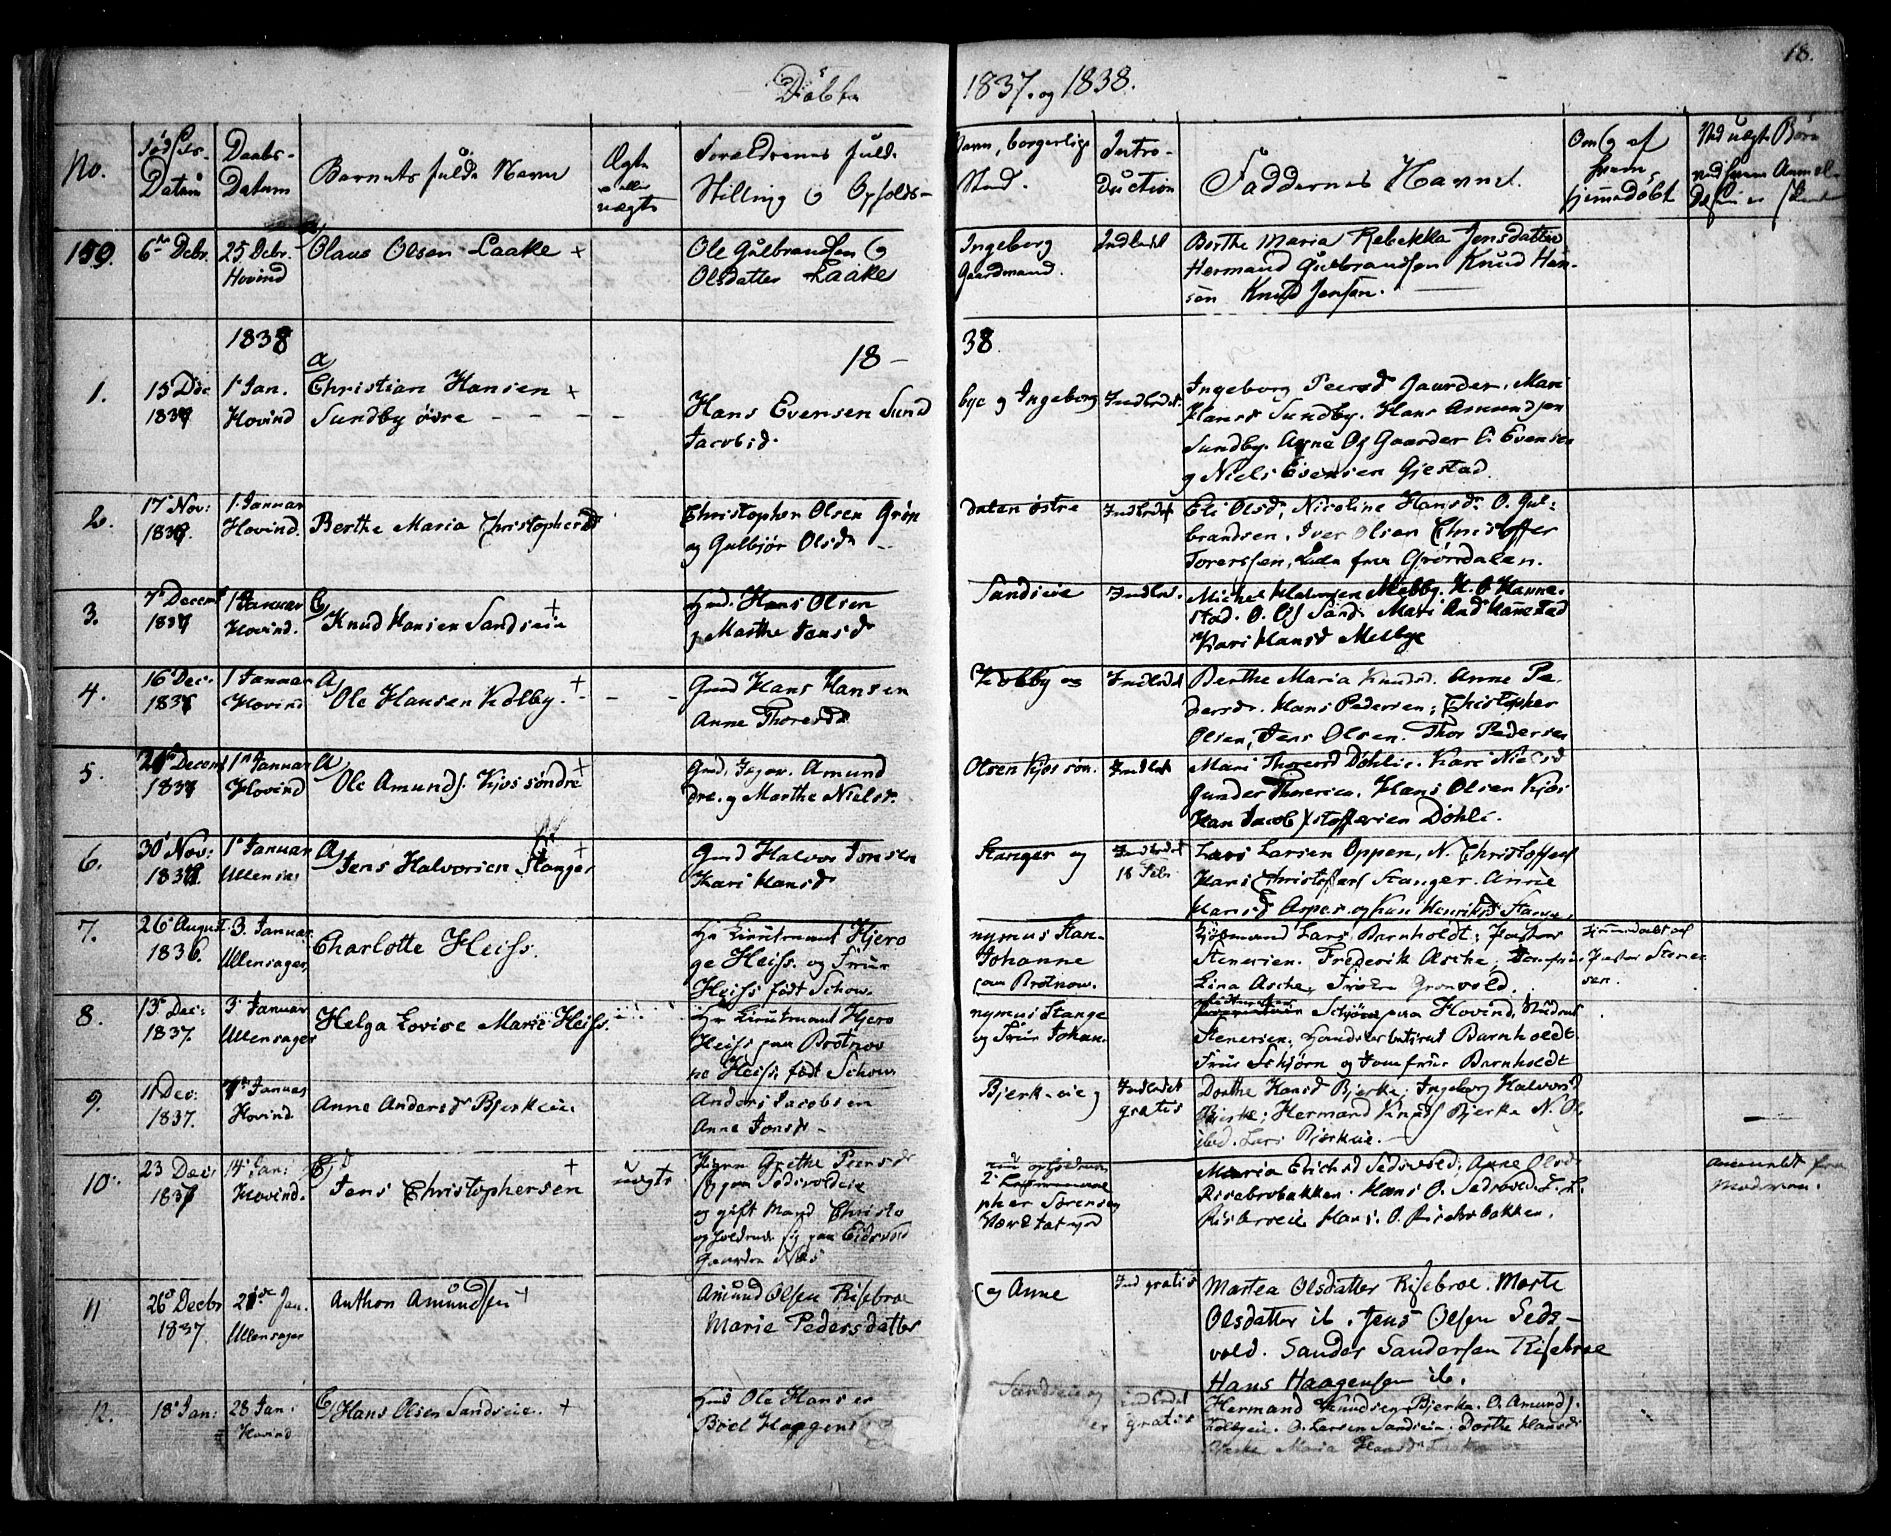 18.
Döbte
1837. og 1838.
No.
Fødsels-
Datum
Daabs-
Datum
Barnets fulde Navn
Ægte
eller
uægte
Forældrenes fulde
Stilling og Opholds-
Navn, borgerlige
Sted.
Intro-
duction
Faddernes Navne.
Om og af
hvem
hjemmedöbt
159.
6te Debr.
25 Debr.
Hovind
a
Olaus Olsen Laake +
Ole Gulbrandsen og
Olsdatter Laake
Ingeborg
Gaardmand.
Indledt
Berthe Maria Rebekka Jensdatter
Hermand Gulbrandsen Knud Han-
sen Knud Jensen.
1838
18 –
38.
1.
15 Dec
1837
1 Jan.
Hovind
a
Christian Hansen +
Sundby øvre
Hans Evensen Sund
Jacobsd.
bye og Ingeborg
Indledet.
Ingeborg Peersd Gaarder, Mari
Hansd Sundby. Hans Amundsen
Sundby. Anne Gaarder Evensen
og Niels Evensen Gjestad.
2.
17 Nov:
1837.
1 Januar
Hovind.
Berthe Maria Christophersd
Christopher Olsen Grøn
og Gulbjør Olsd.
dalen østre
Indledet
Eli Olsd, Nicoline Hansd. O. Gul-
brandsen, Iver Olsen Christoffer
Torerssen, Lade fra Grøndalen.
3.
7 Decem
1837
1 Januar
Hovind.
Knud Hansen Sandseie +
Hmd. Hans Olsen
og Marthe Jensd
Sandseie
Indledt.
Michel Halvorsen Melby. H. O. Hanne-
stad. O. Sand. Mari And Hannestad
Kari Hansd Melbye
4.
16 Dec.
1837
1 Januar
Hovind
a
Ole Hansen Kolby. +
Gmd Hans Hansen
Anne Thoresd
Kolby og
Indledt
Berthe Maria Knudsd. Anne Pe-
dersd. Hans Pedersen; Christopher
Olsen, Jens Olsen. Thor Pedersen
5.
Decem
1837
1 Januar
Hovind
a
Ole Amunds. Kjos søndre +
Gmd. Amund
dre. og Marthe Nielsd.
Olsen Kjos søn.
Indledt
Mari Thoresd Döhlie. Kari Nielsd
Hans Olsen Kjos
Han Jacob Döhli.
6.
30 Nov:
1837.
1 Januar
Ullensa
a
Jens Halvorsen Stanger +
Gmd Halvor Jensen
Kari Hansd
Stanger og
Indledet
18 Feb.
Lars Larsen Oppen, N. Christoffers
Hans Christoffers Stanger. Anne
Hansd og Kari Henriksd Stanger
7.
26 August
1836.
3 Januar
Ullensager
Charlotte Heiss.
Hr Lieutenant Hjero
ge Heiss. og Frue
Heiss født Schow.
nymus Stan-
Johanne
paa Brotnow.
Lars Barnholdt; Pastor
Stenersen. Frederik Asche, Jomfrue
Lina Asche, Frøken Gronvold.
Hjemmedøbt af
Pastor Stener
sen.
8.
13 Dec:
1837.
3 Januar
Ullensager
Helga Lovise Marie Heiss.
Hr Lieutenant Hjero
Heiss paa Brotnov
ne Heiss, født Schow
nymus Stange
og Frue Johan
Schjørn paa Hovind, Student
Stenersen. Handelsbetjent Barnholdt
Frue Schjørn og Jomfrue Barnholdt
9.
11 Dec:
1837.
7 Januar
Hovind.
Anne Andersd Bjerkeie.
Anders Jacobsen
Anne Jonsd.
Bjerkeie og
Indledet
gratis
Dorthe Hansd Bjerke; Ingeborg Halvorsd
Bjerke; Hermand Knuds Bjerke N. O.
Lars Bjerkeie.
10.
23 Dec.
1837
14 Jan:
Hovind.
Jens Christophersen +
uægte
Grethe Peersd
paa Sedsvoldeie
og gift Mand Christo
og paa Eidsvold
Gaarden Næs
pher Sørensen
Maria Erichsd Sedsvold; Anne Olsd.
Risebrobakken. Hans O. Sedsvold. L. L.
Risbroeie, Hans. O. Risebrobakken.
Anmeldt fra
Moderen.
11
26 Decbr
1837.
21de Jan.
Ullensager
Anthon Amundsen +
Amund Olsen Risebroe
Marie Pedersdatter
og Anne
Ind gratis
Martea Olsdatter Risebroe. Marte
Olsdatter ib. Jens Olsen Seds-
vold. Sander Sandersen Risebroe
Hans Haagensen ib.
12.
18 Jan:
28 Jan.
Hovind
Hans Olsen Sandseie. +
Hmd Ole Hansen
Boel Haagens
Sandseie og
indledet
gratis
Hermand Knudsen Bjerke. O. Amunds.
O. Larsen Sandseie. Dorthe Hansd
Maria Hansd